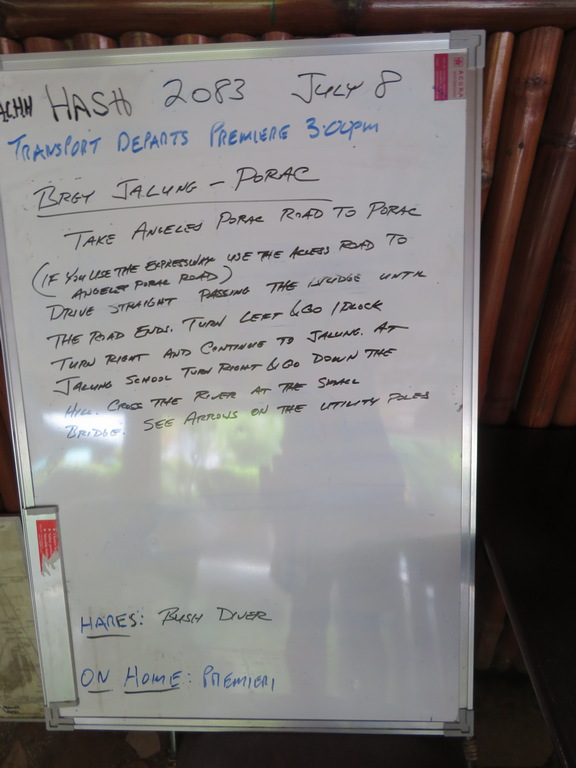 ACHH HASH 2083 JULY 8
TRANSPORT DEPARTS PREMIERE 3:00pm
BRGY JALUNG - PORAC
TAKE ANGELES PORAC ROAD TO PORAC
(IF YOU USE THE EXPRESSWAY USE THE ACCESS ROAD TO
ANGELES PORAC ROAD)
DRIVE STRAIGHT PASSING THE BRIDGE UNTIL
THE ROAD ENDS. TURN LEFT & GO 1 BLOCK
TURN RIGHT AND CONTINUE TO JALUNG. AT
JALUNG SCHOOL TURN RIGHT & GO DOWN THE
HILL. CROSS THE RIVER AT THE SMALL
BRIDGE. SEE ARROWS ON THE UTILITY POLES
HARES: BUSH DIVER
ON HOME: PREMIERI